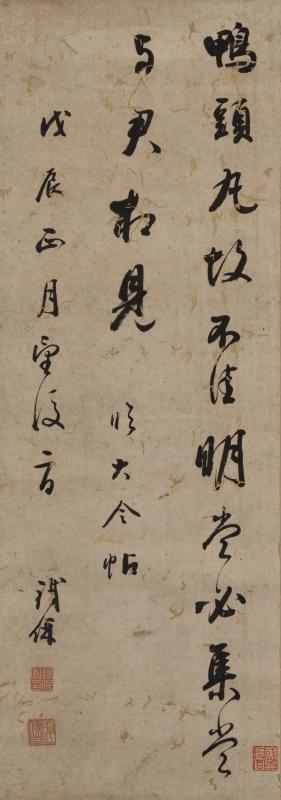 鴨頭丸故不佳明當必集當
与君相見 臨大令帖
戊辰正月望後二日 鐵保